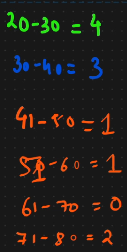 20-30 = 4
30-40 = 3
41-50 = 1
51-60 = 1
61-70 = 0
71-80 = 2